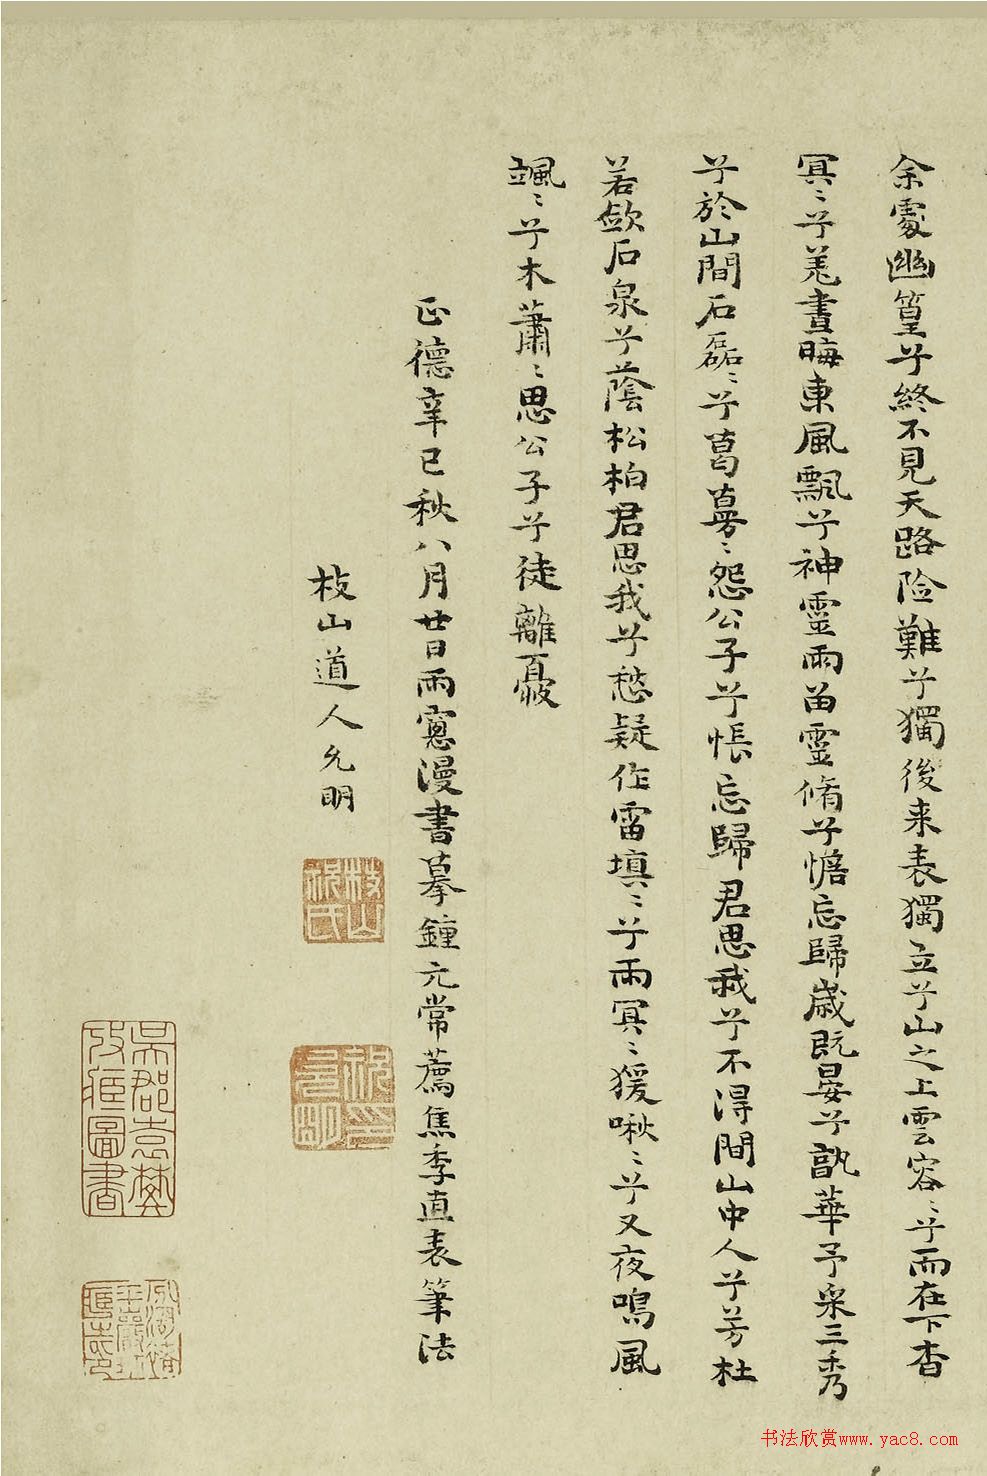 余處幽篁兮終不見天路险難兮獨後来表獨立兮山之上雲容〻兮而在下杳
冥〻兮羌晝晦東風飄兮神靈雨留靈脩兮憺忘歸歲既晏兮孰華予采三秀
兮於山間石磊〻兮葛蔓〻怨公子兮悵忘歸君思我兮不得間山中人兮芳杜
若歙石泉兮蔭松柏君思我兮愁疑作雷填〻兮雨冥〻猨啾〻兮又夜鳴風
颯〻兮木蕭〻思公子兮徒離憂
正德辛巳秋八月廿日雨窻漫書摹鍾元常薦焦季直表筆法
枝山道人允明
枝山祝氏
吳郡袁樊攷藏圖書
书法欣赏www.yac8.com